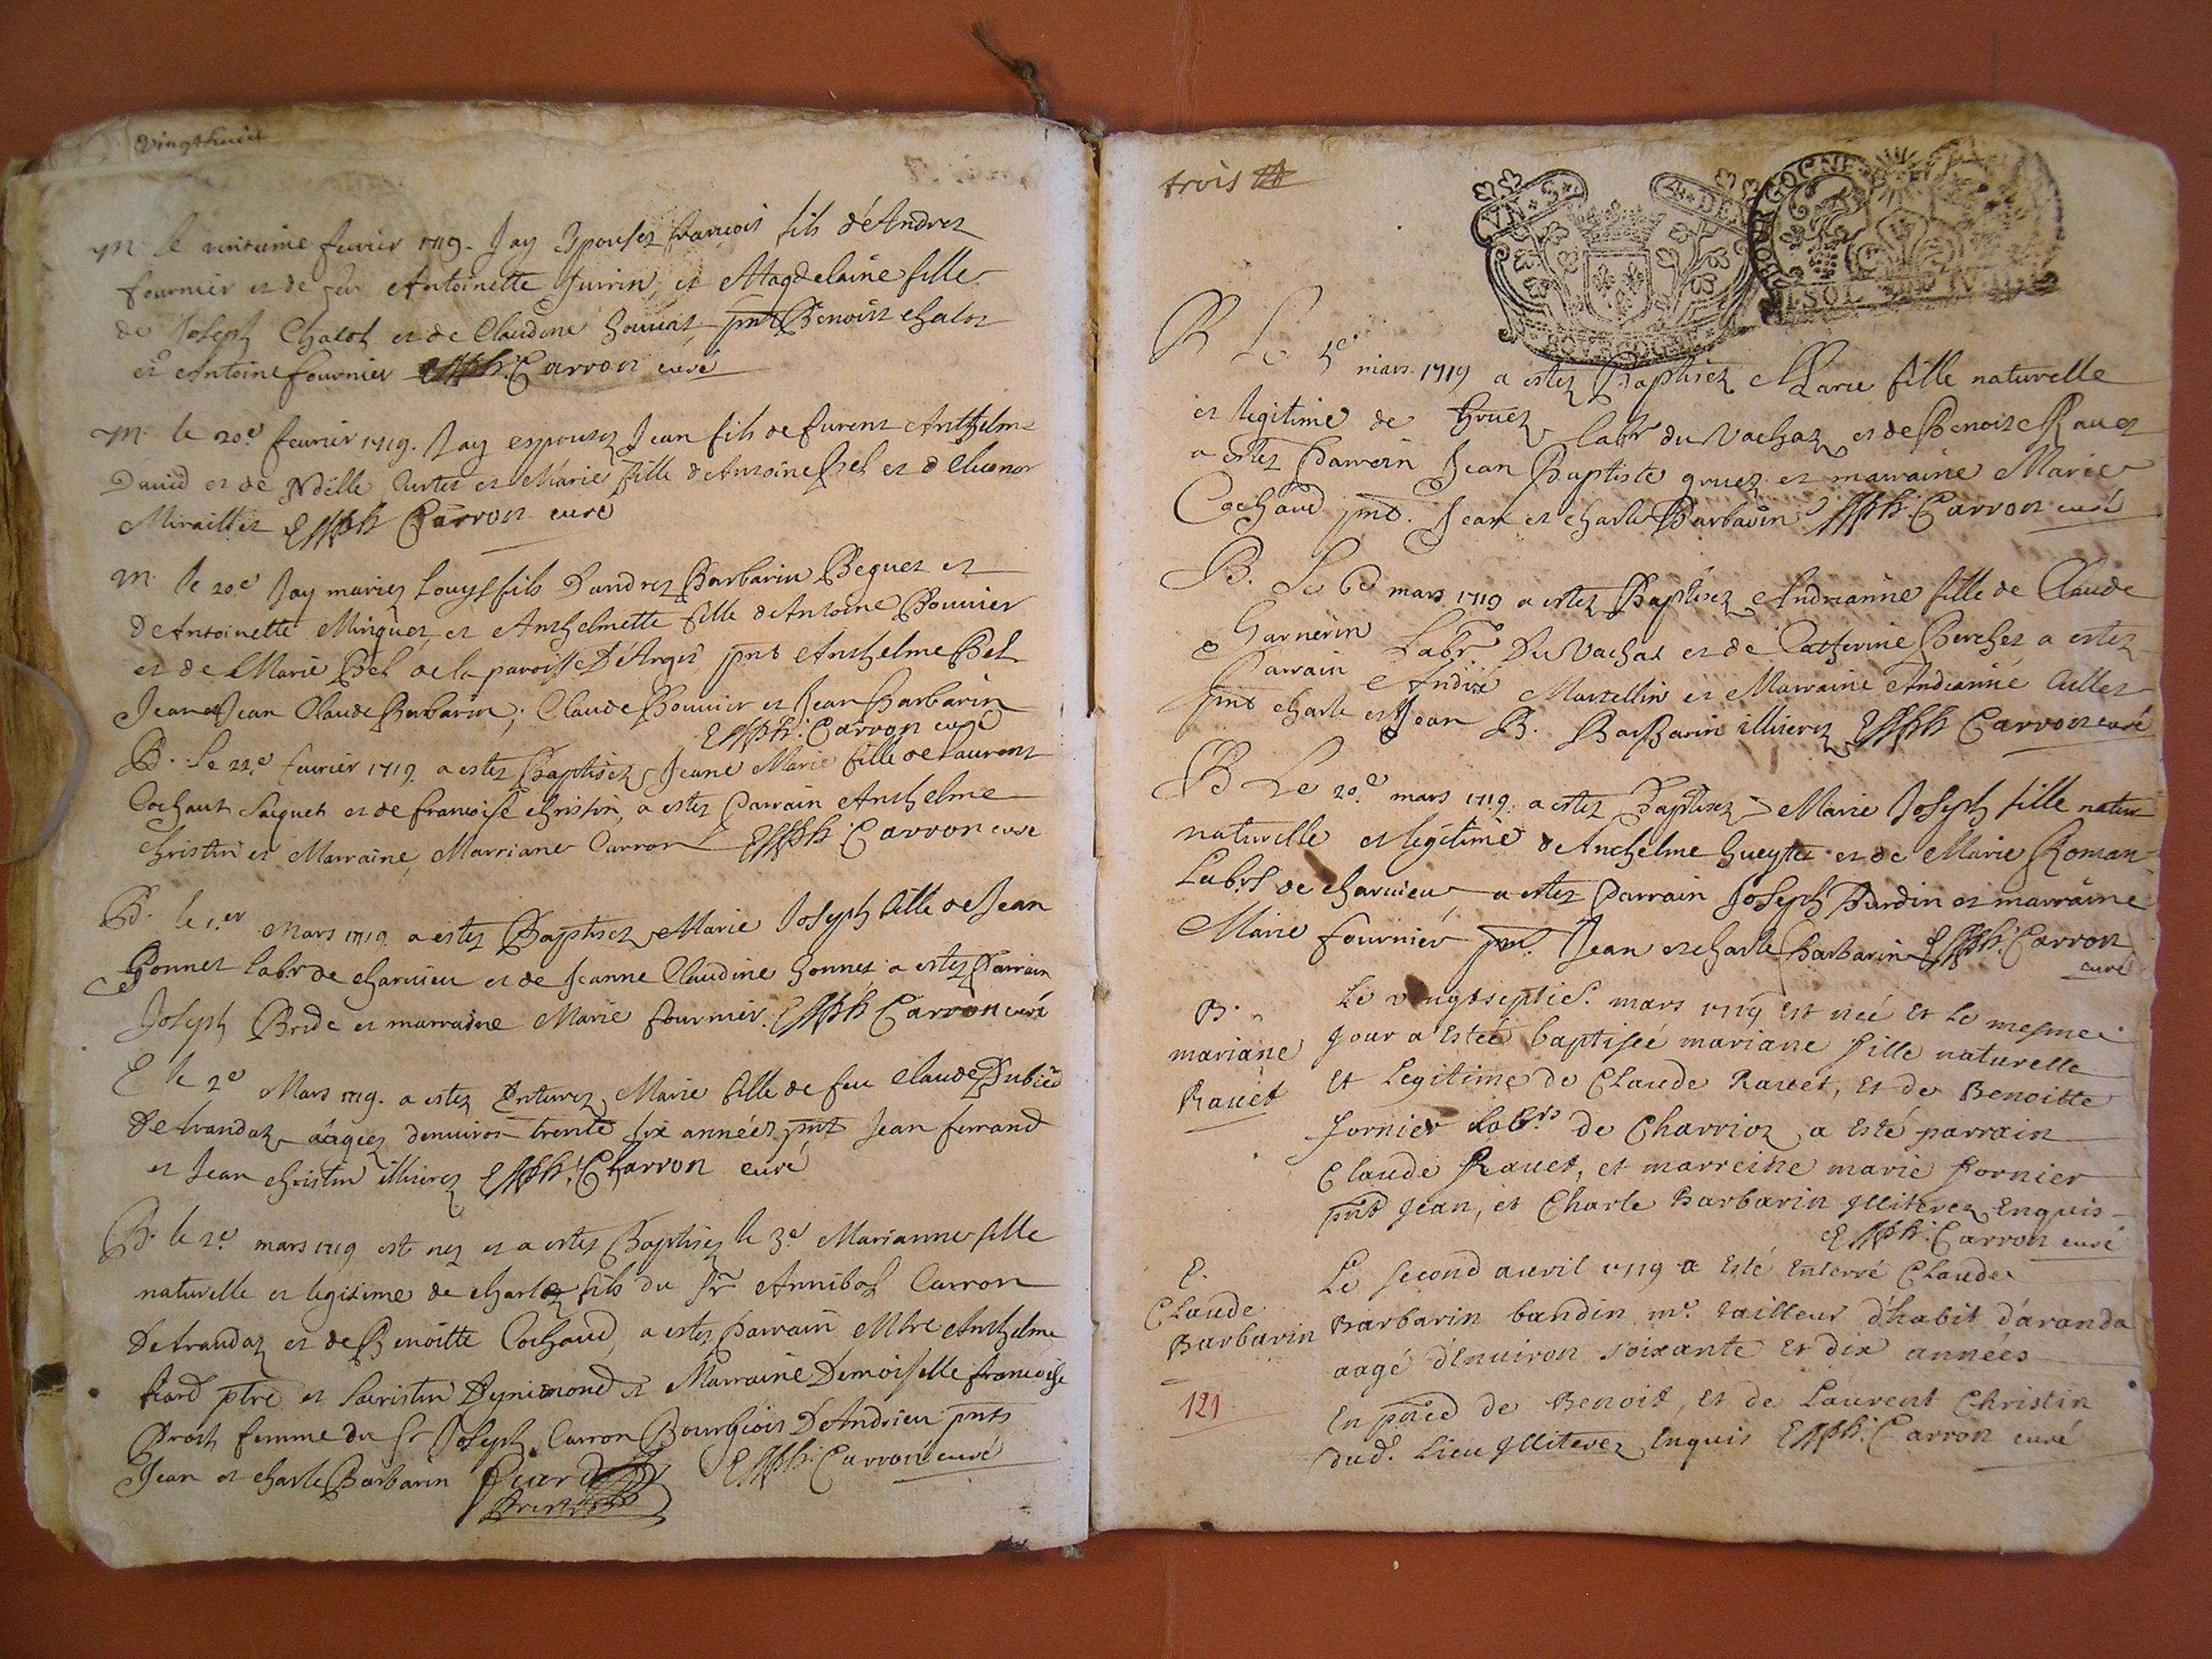 vingthuict
M. le fevrier 1719. Jay Espousez francois fils d'Andrez
fournier et de feu Antoinette et Magdelaine fille
de Joseph Chalot et de Claudine pnts Benoist chalot
et Antoine fournier Carron curé
M. le 20.e fevrier 1719. Jay espousez Jean fils de Anthelme
David et de et Marie fille d'Antoine Bel et d'
Carron curé
M. le 20.e Jay mariez Louys fils D'andrez Barbarin Beguet et
D'Antoinette Minguet, et Anthelmette fille d'Antoine Bouvier
et de Marie Bel de la paroisse pnts Anthelme Bel
Jean Jean Claude Barbarin; Claude Bouvier et Jean Barbarin
Carron curé
B. Le 22.e fevrier 1719. a estez Baptisez Jeane Marie fille de Laurent
Cochaut et de francoise christin, a estez Parrain Anthelme
christin et Marraine, Marriane Carron Carron curé
B. le 1.er Mars 1719. a estez Baptisez Marie Joseph fille de Jean
Gonnet labr. de charvieu et de Jeanne Claudine a estez Parrain
Joseph et marraine Marie fournier. Carron curé
E le 2.e Mars 1719. a estez Enterrez Marie fille de feu Claude
D'arandaz aâgéez d'environ trente six années pnts Jean ferrand
et Jean christin illiterez Charron curé
B. le 2.e mars 1719 est nez et a estez Baptisez le 3.e Marianne fille
naturelle et legitime de charlez fils du Sr. Annibal Carron
D'Arandaz et de Benoitte Cochaud, a estez parrain Anthelme
ptre et et Marraine Demoiselle francoise
femme du Sr Joseph Carron Bourgeois D'Andrieu pnts
Jean et charle Barbarin Carron curé
trois
BOURGOGNE
B Le 5.e mars 1719 a estez Baptisez Marie fille naturelle
et legitime de Gruez labr. du Vachaz et de Benoite Ravet
a estez Parrein Jean Baptiste gruez et marraine Marie
Cochaud pnts. Jean et charle Barbarin Carron curé
B. Le 6.e mars 1719 a estez Baptisez Andrianne fille de Claude
Garnerin Labr. Du Vachat et de Catherine Berchet a estez
Parrain André Martellin et Marraine Andrianne
pnts charle et Jean B. Barbarin illiterez Carron curé
B Le 20.e mars 1719. a estez Baptisez Marie Joseph fille natur
naturelle et legitime d'Anthelme et de Marie Roman
Labrs de charvieu a estez Parrain Joseph et marraine
Marie fournier pnts. Jean et charle Barbarin Carron
curé
B.
mariane
Ravet
Le vingtseptie. mars 1719 est née et le mesme
Jour a estéé baptiséé mariane fille naturelle
et Legitime de Claude Ravet, et de Benoitte
fornier labrs. de Charvioz a esté parrain
Claude Ravet, et marreine marie fornier
pnts Jean, et Charle Barbarin Illiterez Enquis
Carron curé
E.
Claude
Barbarin
121
Le second avril 1719 a esté Enterré Claude
Barbarin bandin me. tailleur d'habit d'aranda
aagé d'environ soixante et dix années
En pnce de Benoit, et de Laurent Christin
dud. Lieu Illiterez Enquis Carron curé